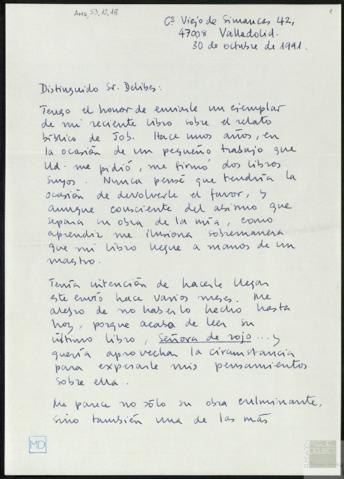 AMD, 53, 12, 18
1
Cº Viejo de Simancas 42,
47008 Valladolid.
30 de octubre de 1991.
Distinguido Sr. Delibes:
Tengo el honor de enviarle un ejemplar
de mi reciente libro sobre el relato
bíblico de Job. Hace unos años, en
la ocasión de un pequeño trabajo que
Ud. me pidió, me firmó dos libros
suyos. Nunca pensé que tendría la
ocasión de devolverle el favor, y
aunque consciente del abismo que
separa su obra de la mía, como
aprendiz me ilusiona sobremanera
que mi libro llegue a manos de un
maestro.
Tenía intención de hacerle llegar
este envío hace varios meses. Me
alegro de no haberlo hecho hasta
hoy, porque acabo de leer su
último libro, Señora de rojo... y
quería aprovechar la circunstancia
para expresarle mis pensamientos
sobre ella.
Me parece no sólo su obra culminante,
sino también una de las más
MD